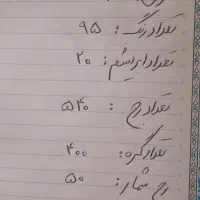 تعداد رنگ: ۹۵
تعداد ابریشم: ۲۰
تعداد رج: ۵۴۰
تعداد گره: ۴۰۰
رج شمار: ۵۰